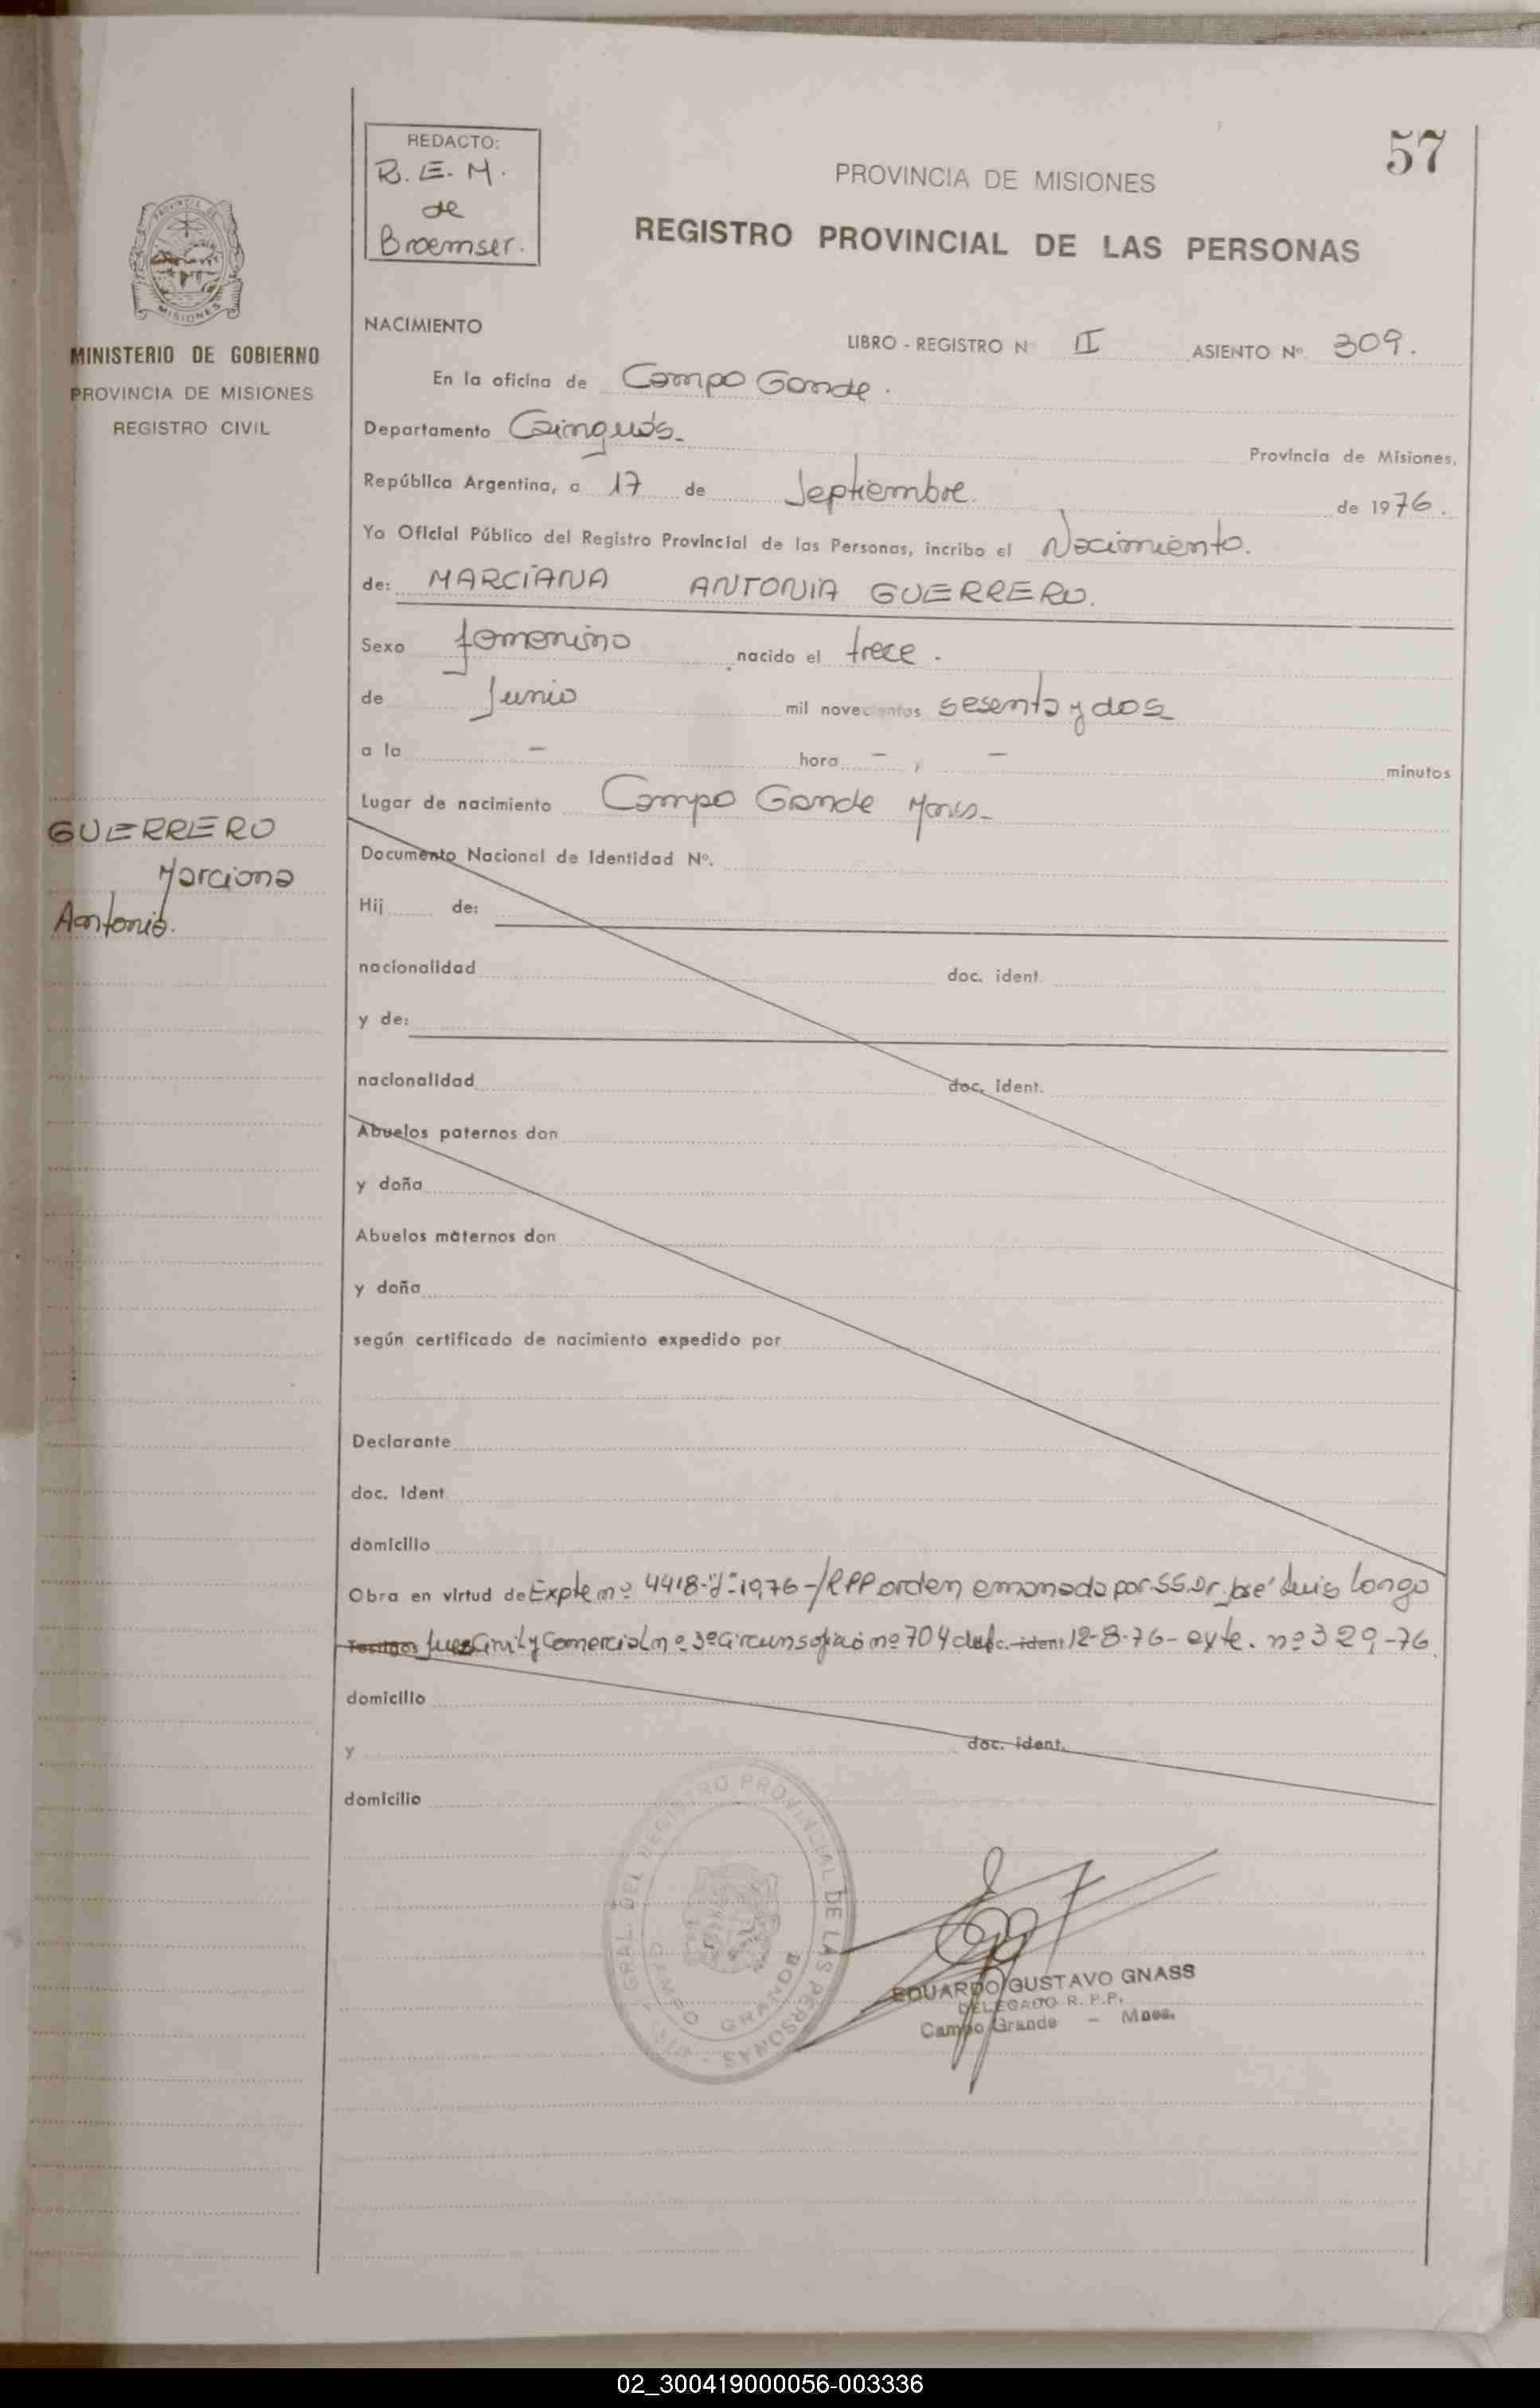 57
REDACTO:
R. E. M.
de
Broemser.
PROVINCIA DE MISIONES
REGISTRO PROVINCIAL DE LAS PERSONAS
PROVINCIA DE
MISIONES
MINISTERIO DE GOBIERNO
PROVINCIA DE MISIONES
REGISTRO CIVIL
NACIMIENTO
LIBRO - REGISTRO N II ASIENTO Nº. 309.
En la oficina de Campo Grande.
Departamento Cainguás. Provincia de Misiones,
República Argentina, a 17 de Septiembre. de 1976.
Yo Oficial Público del Registro Provincial de las Personas, incribo el Nacimiento.
de: MARCIANA ANTONIA GUERRERO.
Sexo femenino nacido el trece.
de Junio mil novecientos sesenta y dos
a la - hora - y - minutos
Lugar de nacimiento Campo Grande
GUERRERO
Marciana
Antonia.
Documento Nacional de Identidad Nº.
Hij de:
nacionalidad doc. ident.
y de:
nacionalidad doc. ident.
Abuelos paternos don
y doña
Abuelos maternos don
y doña
según certificado de nacimiento expedido por
Declarante
doc. Ident.
domicilio
Obra en virtud de Expte nº 4418- -1976-/RPP orden emanada por SS.Dr. José Luis Longo
Testigos Juez Civil y Comercial nº 3º nº 704 doc. ident 12-8-76- exte. nº 329-76
domicilio
y doc. ident.
domicilio
GRAL. DEL REGISTRO PROVINCIAL DE LAS PERSONAS
CAMPO GRANDE
EDUARDO GUSTAVO GNASS
DELEGADO R. P. P.
Campo Grande - Mnes.
02_300419000056-003336